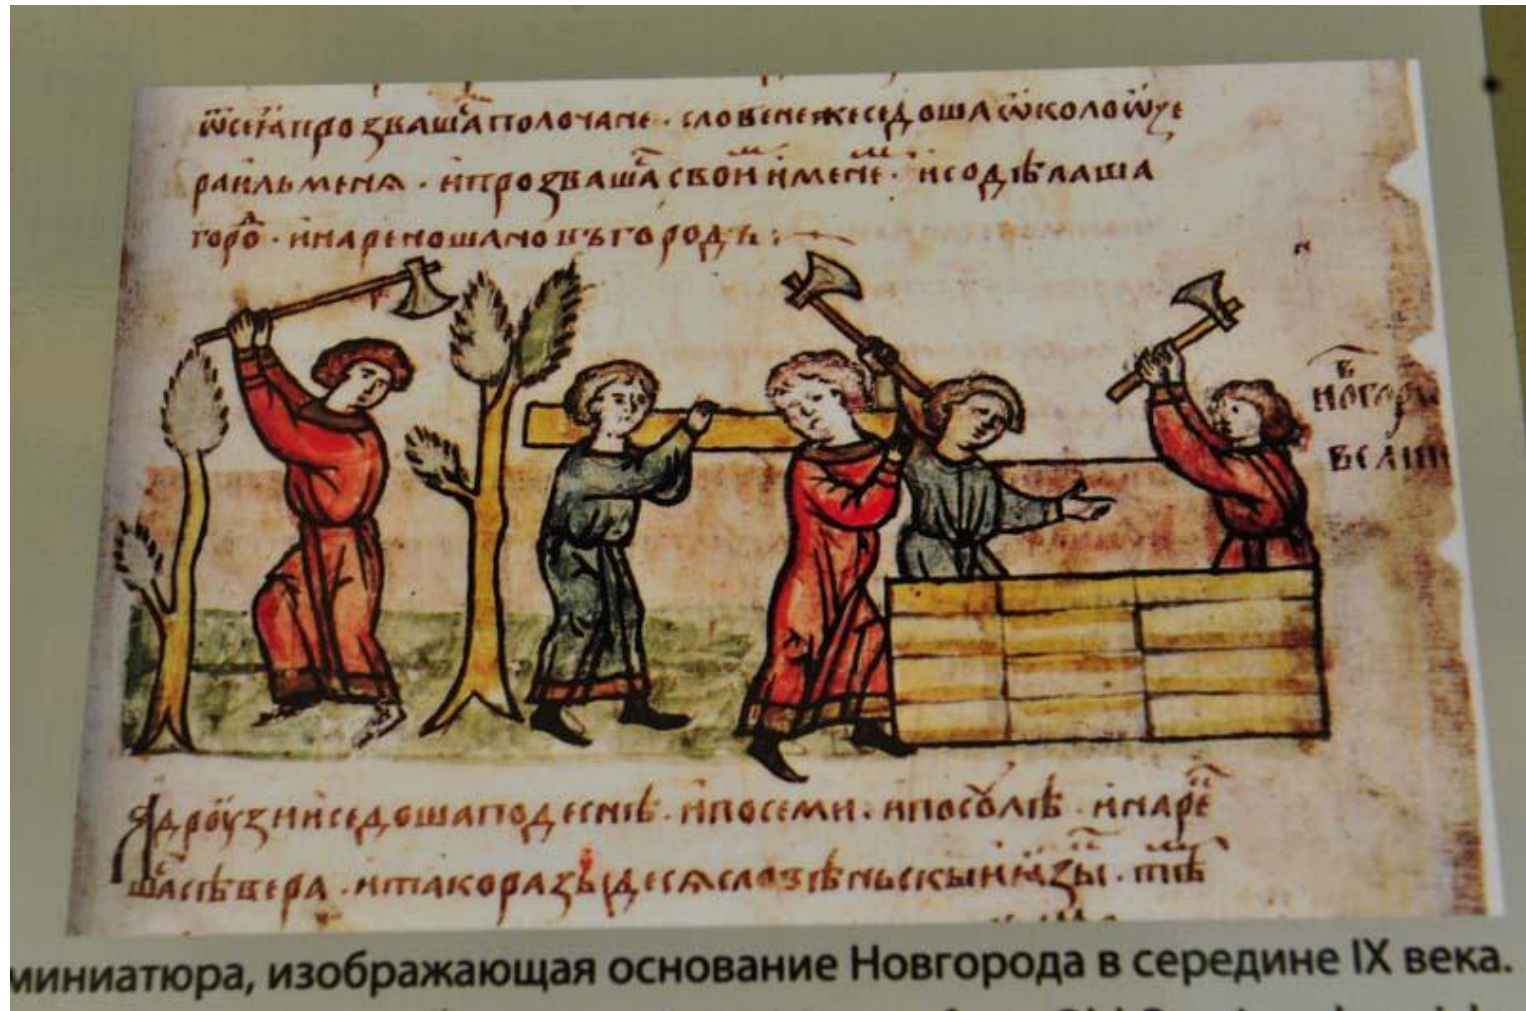 ѿсеꙗ прозвашасѧ полочане · словене же седоша ѡколо ѡзе
ра илъменѧ · и прозвашасѧ своим именем · и содѣлаша
город · и нарекоша новъгородъ :
в
ногоро
вели
а дроузии седоша по деснѣ · и по семи · и по соулѣ · и наре
шасѧ сѣвера · и тако разыдесѧ словѣньскыи ꙗзыкъ · тѣ
миниатюра, изображающая основание Новгорода в середине IX века.